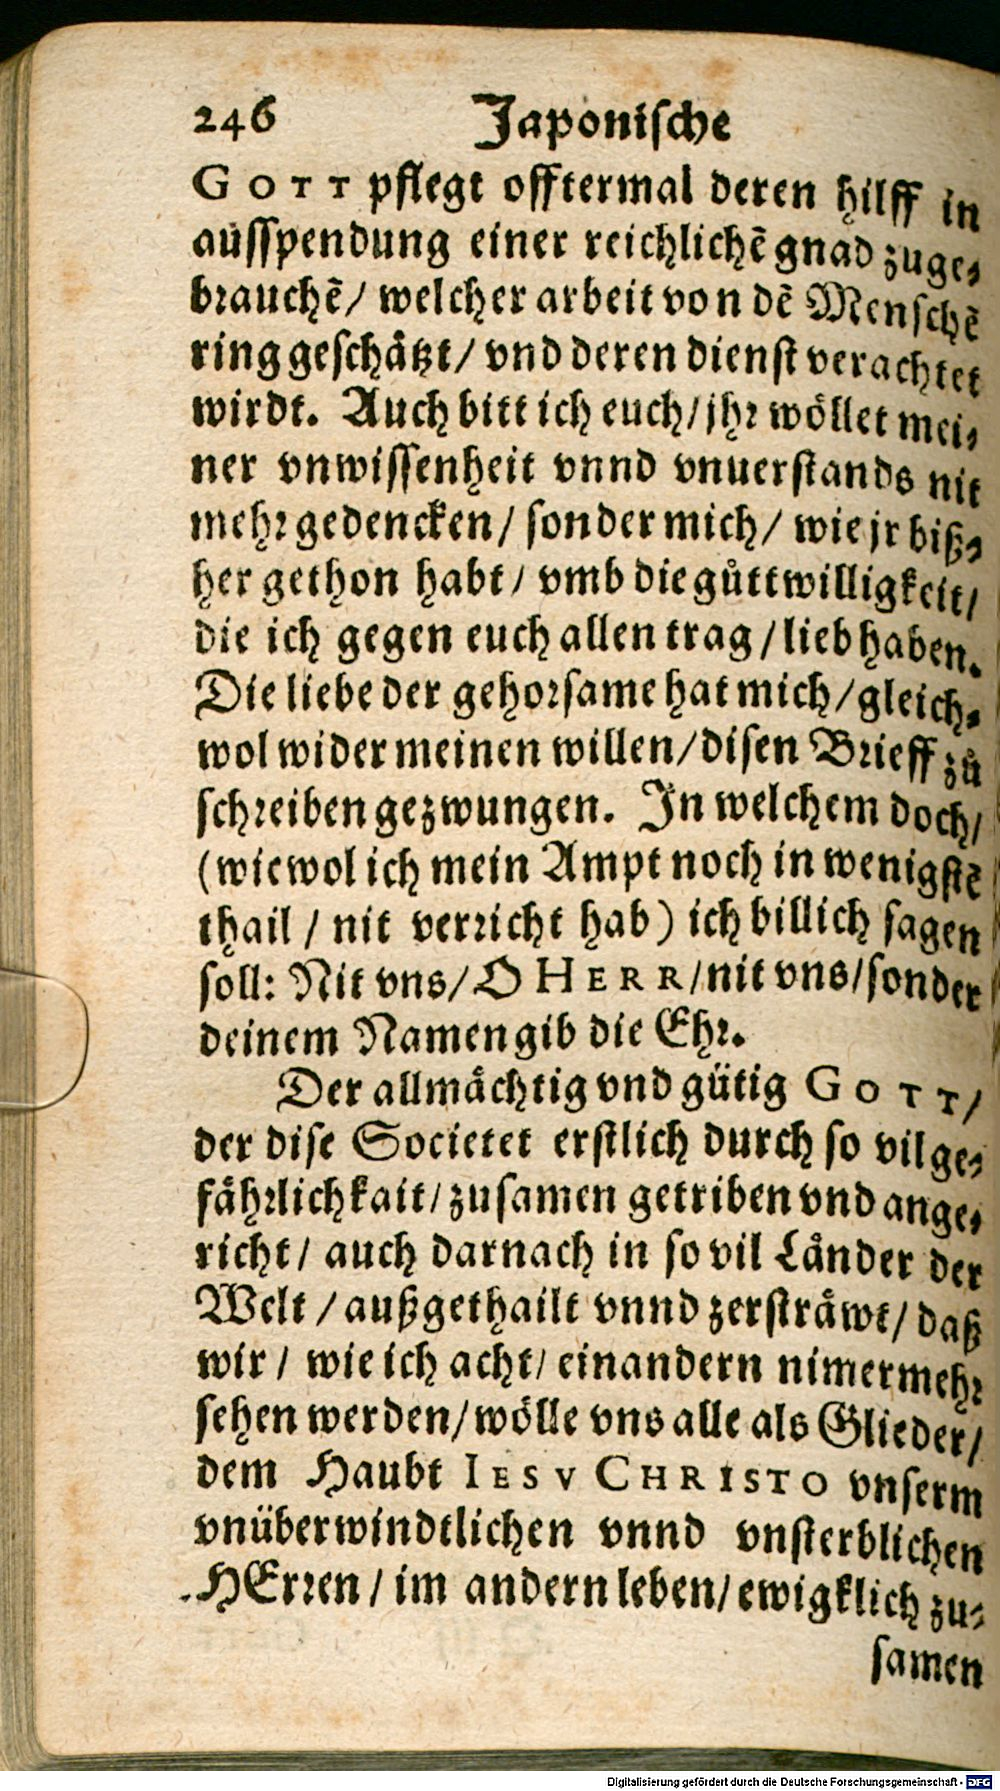 246 Japonische
GOTT pflegt offtermal deren hilff in
ausspendung einer reichlichē gnad zuge-
brauchē/ welcher arbeit von dē Menschē
ring geschätzt/ vnd deren dienst verachtet
wirdt. Auch bitt ich euch/ jhr wöllet mei-
ner vnwissenheit vnnd vnuerstands nit
mehr gedencken/ sonder mich/ wie jr biß-
her gethon habt/ vmb die gůttwilligkeit/
die ich gegen euch allen trag/ lieb haben.
Die liebe der gehorsame hat mich/ gleich-
wol wider meinen willen/ disen Brieff zů
schreiben gezwungen. In welchem doch/
(wiewol ich mein Ampt noch in wenigstē
thail/ nit verricht hab) ich billich sagen
soll: Nit vns/ O HERR/ nit vns/ sonder
deinem Namen gib die Ehr.
Der allmächtig vnd gütig GOTT/
der dise Societet erstlich durch so vil ge-
fährlichkait/ zusamen getriben vnd ange-
richt/ auch darnach in so vil Länder der
Welt/ außgethailt vnnd zersträwt/ daß
wir/ wie ich acht/ einandern nimermehr
sehen werden/ wölle vns alle als Glieder/
dem Haubt IESV CHRISTO vnserm
vnüberwindtlichen vnnd vnsterblichen
HErren/ im andern leben/ ewigklich zu-
samen
Digitalisierung gefördert durch die Deutsche Forschungsgemeinschaft - DFG